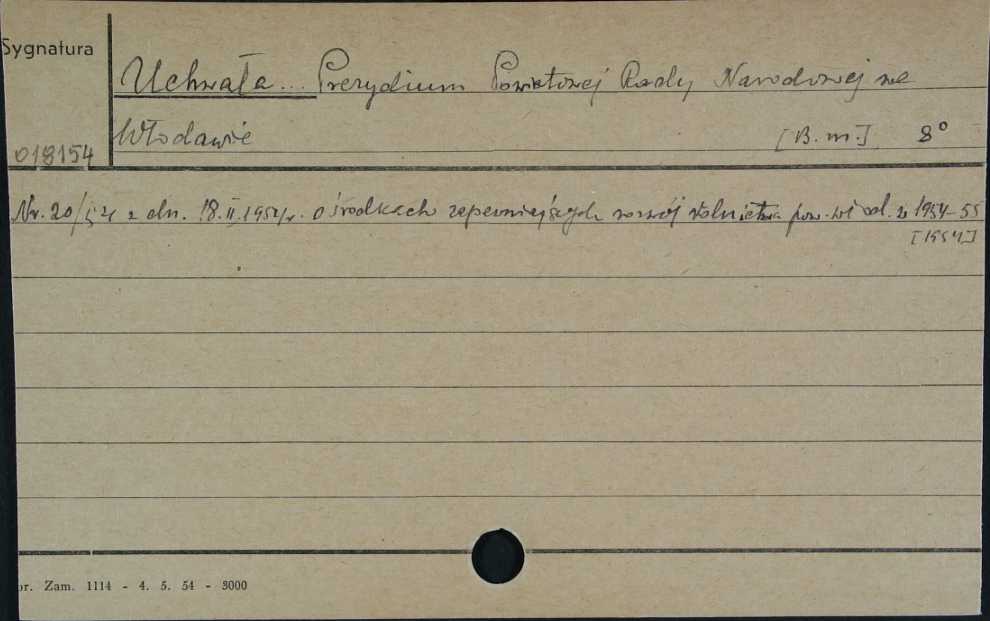 Sygnatura
Uchwała... Prezydium Powiatowej Rady Narodowej we
Włodawie [B. m.] 8°
018154
Nr. 20/54 z dn. 18.II.1954 r. o środkach zapewniających rozwój rolnictwa pow. wł od. w 1954-55
[1954]
or. Zam. 1114 - 4. 5. 54 - 3000